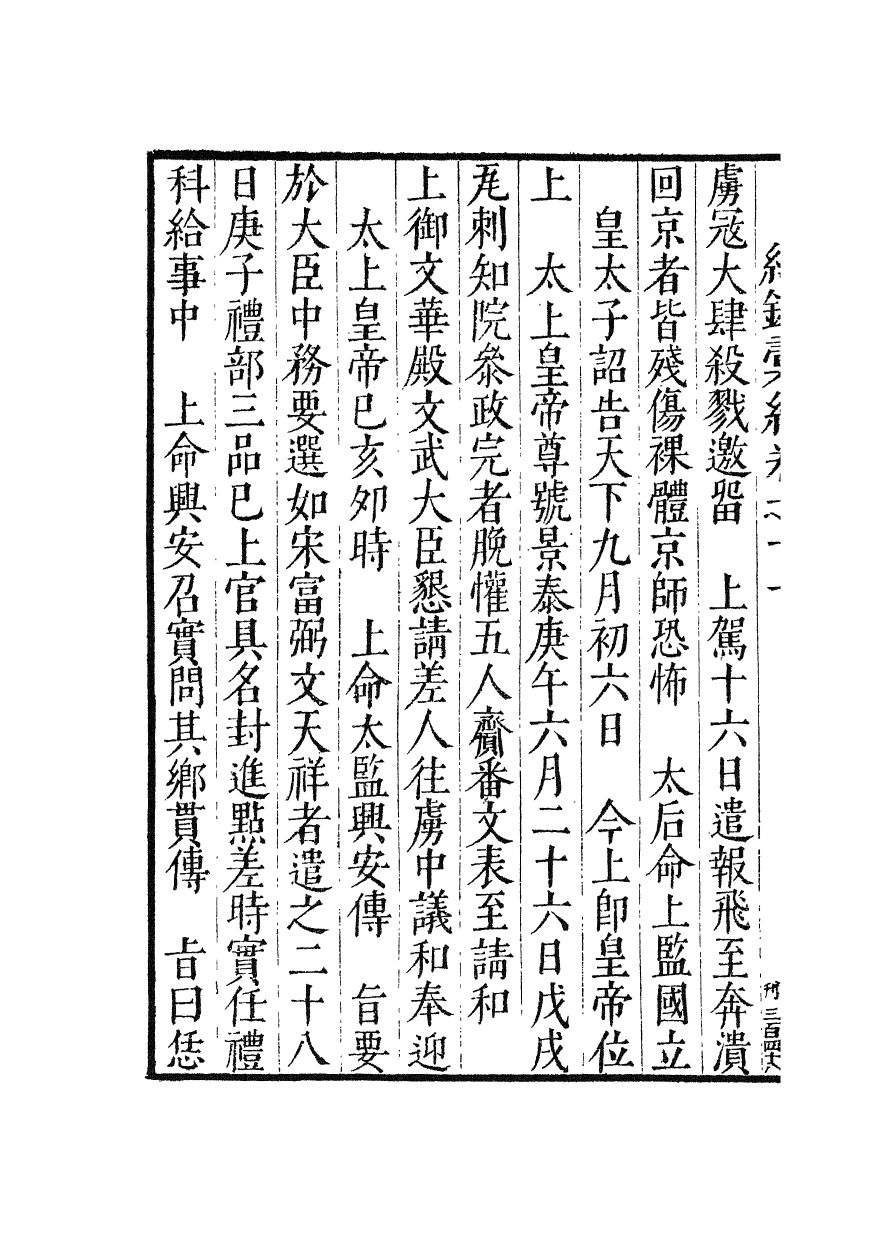 紀錄彙編卷之十七
虜冦大肆殺戮邀畱　上駕十六日遣報飛至奔潰
回京者皆殘傷裸體京師恐怖　太后命上監國立
皇太子詔告天下九月初六日　今上卽皇帝位
上　太上皇帝尊號景泰庚午六月二十六日戊戌
尫剌知院叅政完者脫懽五人齎番文表至請和
上御文華殿文武大臣懇請差人往虜中議和奉迎
太上皇帝巳亥夘時　上命太監興安傳　旨要
於大臣中務要選如宋富弼文天祥者遣之二十八
日庚子禮部三品巳上官具名封進點差時實任禮
科給事中　上命興安召實問其鄉貫傳　旨曰恁